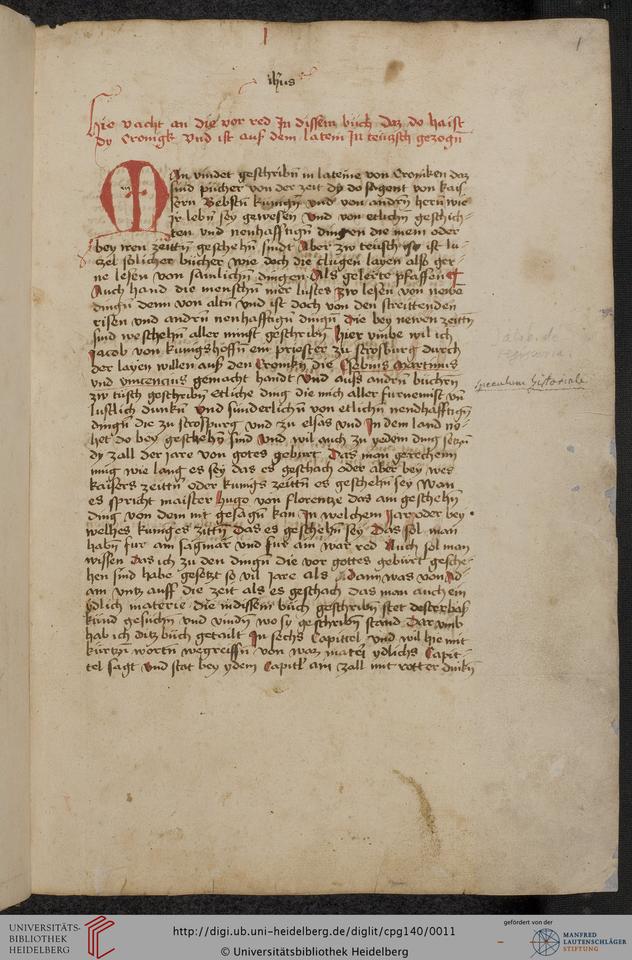 1
ihus
Hie vacht an die vor red Jn dissem buch daz do haist
dy Cronigk vnd ist aus dem latein Jn teutzsch gezogn̄
MAn vindet geschribn̄ in lateine von Croniken daz
sind pücher von der zeit dy do sagent von kais
sern Bebstn̄ kunign̄ vnd von andrn̄ hern wie
Jr lebn̄ sey gewesen vnd von etlichn̄ geschich-
ten vnd nenhafftign̄ dingen die inein oder
bey iren zeittn̄ geschehn̄ sindt Aber zw teusch ist lu-
tzel solicher bücher wie doch die clugen layen alss ger-
ne lesen von samlichn̄ dingen Als gelerte pfaffen
Auch hand die menschn̄ mer lustes zw lesen von newe
dingn̄ denn von altn̄ vnd ist doch von den streittenden
risen vnd andrn̄ nenhafftign̄ dingn̄ die bey newen zeittn̄
sind weschehn̄ aller minst geschribn̄ hier vmbe wil ich
Jacob von kunigshoffn̄ ein priester zu strosburg durch
der layen willen auß den Cronikn̄ die Esebius Martinus
vnd vincencius gemacht handt vnd auss andrn̄ buchrn̄
zw tusch geschribn̄ etliche ding die mich aller furnemist vn̄
lustlich dunkn̄ vnd sunderlichn̄ von etlichn̄ nendhafftign̄
dingn̄ die zu strosburg vnd zu elsas vnd Jn dem land ny-
het do bey geschehn̄ sind vnd wil auch zu yedem ding setzn̄
dy zall der jare von gotes geburt Das man gerechein
müg wie lang es sey das es geschach oder aber bey wes
kaisers zeittn̄ oder kunigs zeittn̄ es geschehn̄ sey Wan
es spricht maister hugo von florentze das ain geschehn̄
ding von dem nit gesagn̄ kan Jn welchem Jar oder bey
welhes kuniges zittn̄ das es geschehn̄ sey Das sol man
habn̄ fur ain sagmär vnd fur ain war red Auch sol man
wissen das ich zu den dingn̄ die vor gottes geburt gesche-
hen sind habe gesetzt so vil jare als dann was von Ad-
am vntz auff die zeit als es geschach das man auch ein
ydlich materie die in dissem buch geschribn̄ stet dester bas
kund gesuchn̄ vnd vindn̄ wo sy geschribn̄ stand Dar vmb
hab ich ditz buch getailt Jn sechs Capittel vnd wil hie mit
kurtzn̄ wortn̄ wegreiffn̄ von waz materi ydlichs Capit-
tel sagt vnd stat bey ydem Capitl ain zall mit rotter dinkn̄
speculum historiale
UNIVERSITÄTS-
BIBLIOTHEK
HEIDELBERG
http://digi.ub.uni-heidelberg.de/diglit/cpg140/0011
© Universitätsbibliothek Heidelberg
gefördert von der
MANFRED
LAUTENSCHLÄGER
STIFTUNG